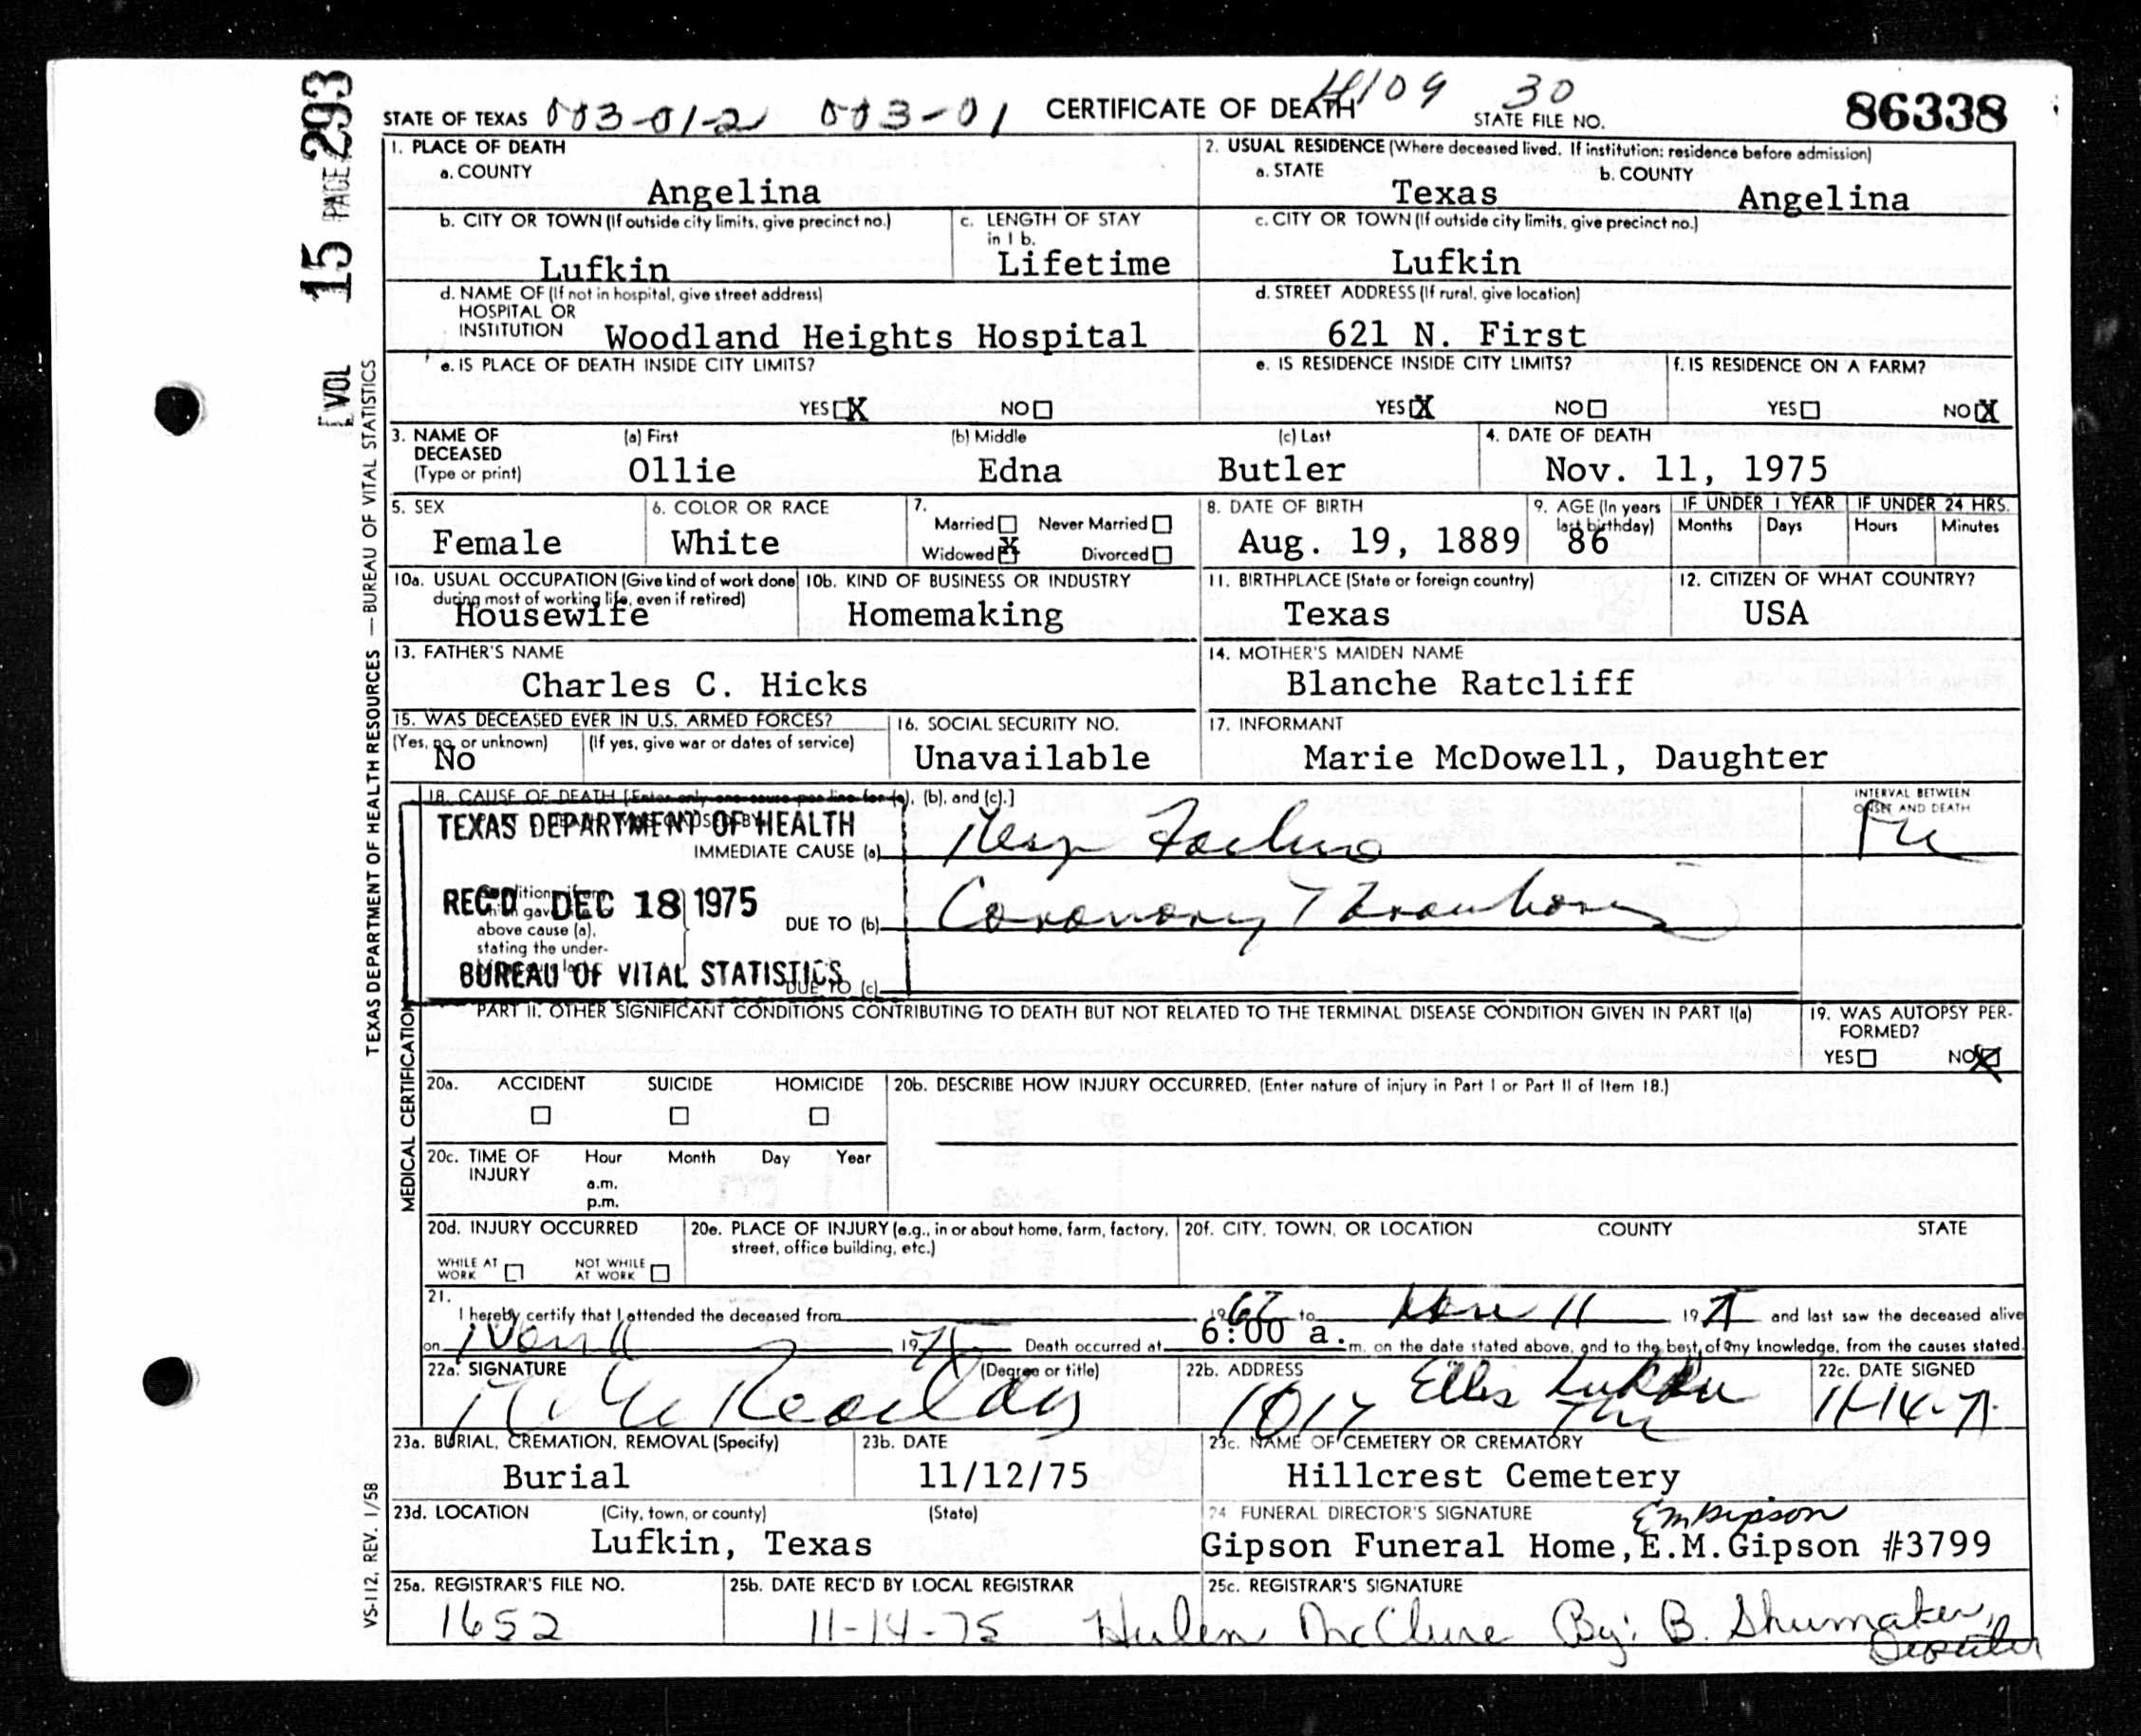 VOL 15 PAGE 293
TEXAS DEPARTMENT OF HEALTH RESOURCES — BUREAU OF VITAL STATISTICS
VS-112, REV. 1/58
STATE OF TEXAS 003-01-2 003-01 CERTIFICATE OF DEATH 4109 30 STATE FILE NO. 86338
1. PLACE OF DEATH
a. COUNTY
Angelina
2. USUAL RESIDENCE (Where deceased lived. If institution: residence before admission)
a. STATE b. COUNTY
Texas Angelina
b. CITY OR TOWN (If outside city limits, give precinct no.)
Lufkin
c. LENGTH OF STAY
in 1 b.
Lifetime
c. CITY OR TOWN (If outside city limits, give precinct no.)
Lufkin
d. NAME OF (If not in hospital, give street address)
HOSPITAL OR
INSTITUTION Woodland Heights Hospital
d. STREET ADDRESS (If rural, give location)
621 N. First
e. IS PLACE OF DEATH INSIDE CITY LIMITS?
YES X NO
e. IS RESIDENCE INSIDE CITY LIMITS?
YES X NO
f. IS RESIDENCE ON A FARM?
YES NO X
3. NAME OF
DECEASED
(Type or print)
(a) First (b) Middle (c) Last
Ollie Edna Butler
4. DATE OF DEATH
Nov. 11, 1975
5. SEX
Female
6. COLOR OR RACE
White
7.
Married Never Married
Widowed X Divorced
8. DATE OF BIRTH
Aug. 19, 1889
9. AGE (In years
last birthday)
86
IF UNDER 1 YEAR IF UNDER 24 HRS.
Months Days Hours Minutes
10a. USUAL OCCUPATION (Give kind of work done
during most of working life, even if retired)
Housewife
10b. KIND OF BUSINESS OR INDUSTRY
Homemaking
11. BIRTHPLACE (State or foreign country)
Texas
12. CITIZEN OF WHAT COUNTRY?
USA
13. FATHER'S NAME
Charles C. Hicks
14. MOTHER'S MAIDEN NAME
Blanche Ratcliff
15. WAS DECEASED EVER IN U.S. ARMED FORCES?
(Yes, no, or unknown) (If yes, give war or dates of service)
No
16. SOCIAL SECURITY NO.
Unavailable
17. INFORMANT
Marie McDowell, Daughter
MEDICAL CERTIFICATION
18. CAUSE OF DEATH [Enter only one cause per line for (a), (b), and (c).]
INTERVAL BETWEEN
ONSET AND DEATH
TEXAS DEPARTMENT OF HEALTH
IMMEDIATE CAUSE (a) Resp Failure
REC'D DEC 18 1975
above cause (a),
stating the under-
DUE TO (b) Coronary Thrombosis
BUREAU OF VITAL STATISTICS
DUE TO (c)
PART II. OTHER SIGNIFICANT CONDITIONS CONTRIBUTING TO DEATH BUT NOT RELATED TO THE TERMINAL DISEASE CONDITION GIVEN IN PART I(a)
19. WAS AUTOPSY PER-
FORMED?
YES NO X
20a. ACCIDENT SUICIDE HOMICIDE
20b. DESCRIBE HOW INJURY OCCURRED. (Enter nature of injury in Part I or Part II of Item 18.)
20c. TIME OF
INJURY
Hour Month Day Year
a.m.
p.m.
20d. INJURY OCCURRED
WHILE AT
WORK
NOT WHILE
AT WORK
20e. PLACE OF INJURY (e.g., in or about home, farm, factory,
street, office building, etc.)
20f. CITY, TOWN, OR LOCATION COUNTY STATE
21.
I hereby certify that I attended the deceased from 1967 to Nov 11 1975 and last saw the deceased alive
on Nov 11 1975 Death occurred at 6:00 a. m. on the date stated above, and to the best of my knowledge, from the causes stated.
22a. SIGNATURE (Degree or title)
22b. ADDRESS
1017 Ellis Lufkin
22c. DATE SIGNED
11-14-75
23a. BURIAL, CREMATION, REMOVAL (Specify)
Burial
23b. DATE
11/12/75
23c. NAME OF CEMETERY OR CREMATORY
Hillcrest Cemetery
23d. LOCATION (City, town, or county) (State)
Lufkin, Texas
24 FUNERAL DIRECTOR'S SIGNATURE EM Gipson
Gipson Funeral Home, E.M. Gipson #3799
25a. REGISTRAR'S FILE NO.
1652
25b. DATE REC'D BY LOCAL REGISTRAR
11-14-75
25c. REGISTRAR'S SIGNATURE
Hulen McClure By: B. Shumaker,
Deputy